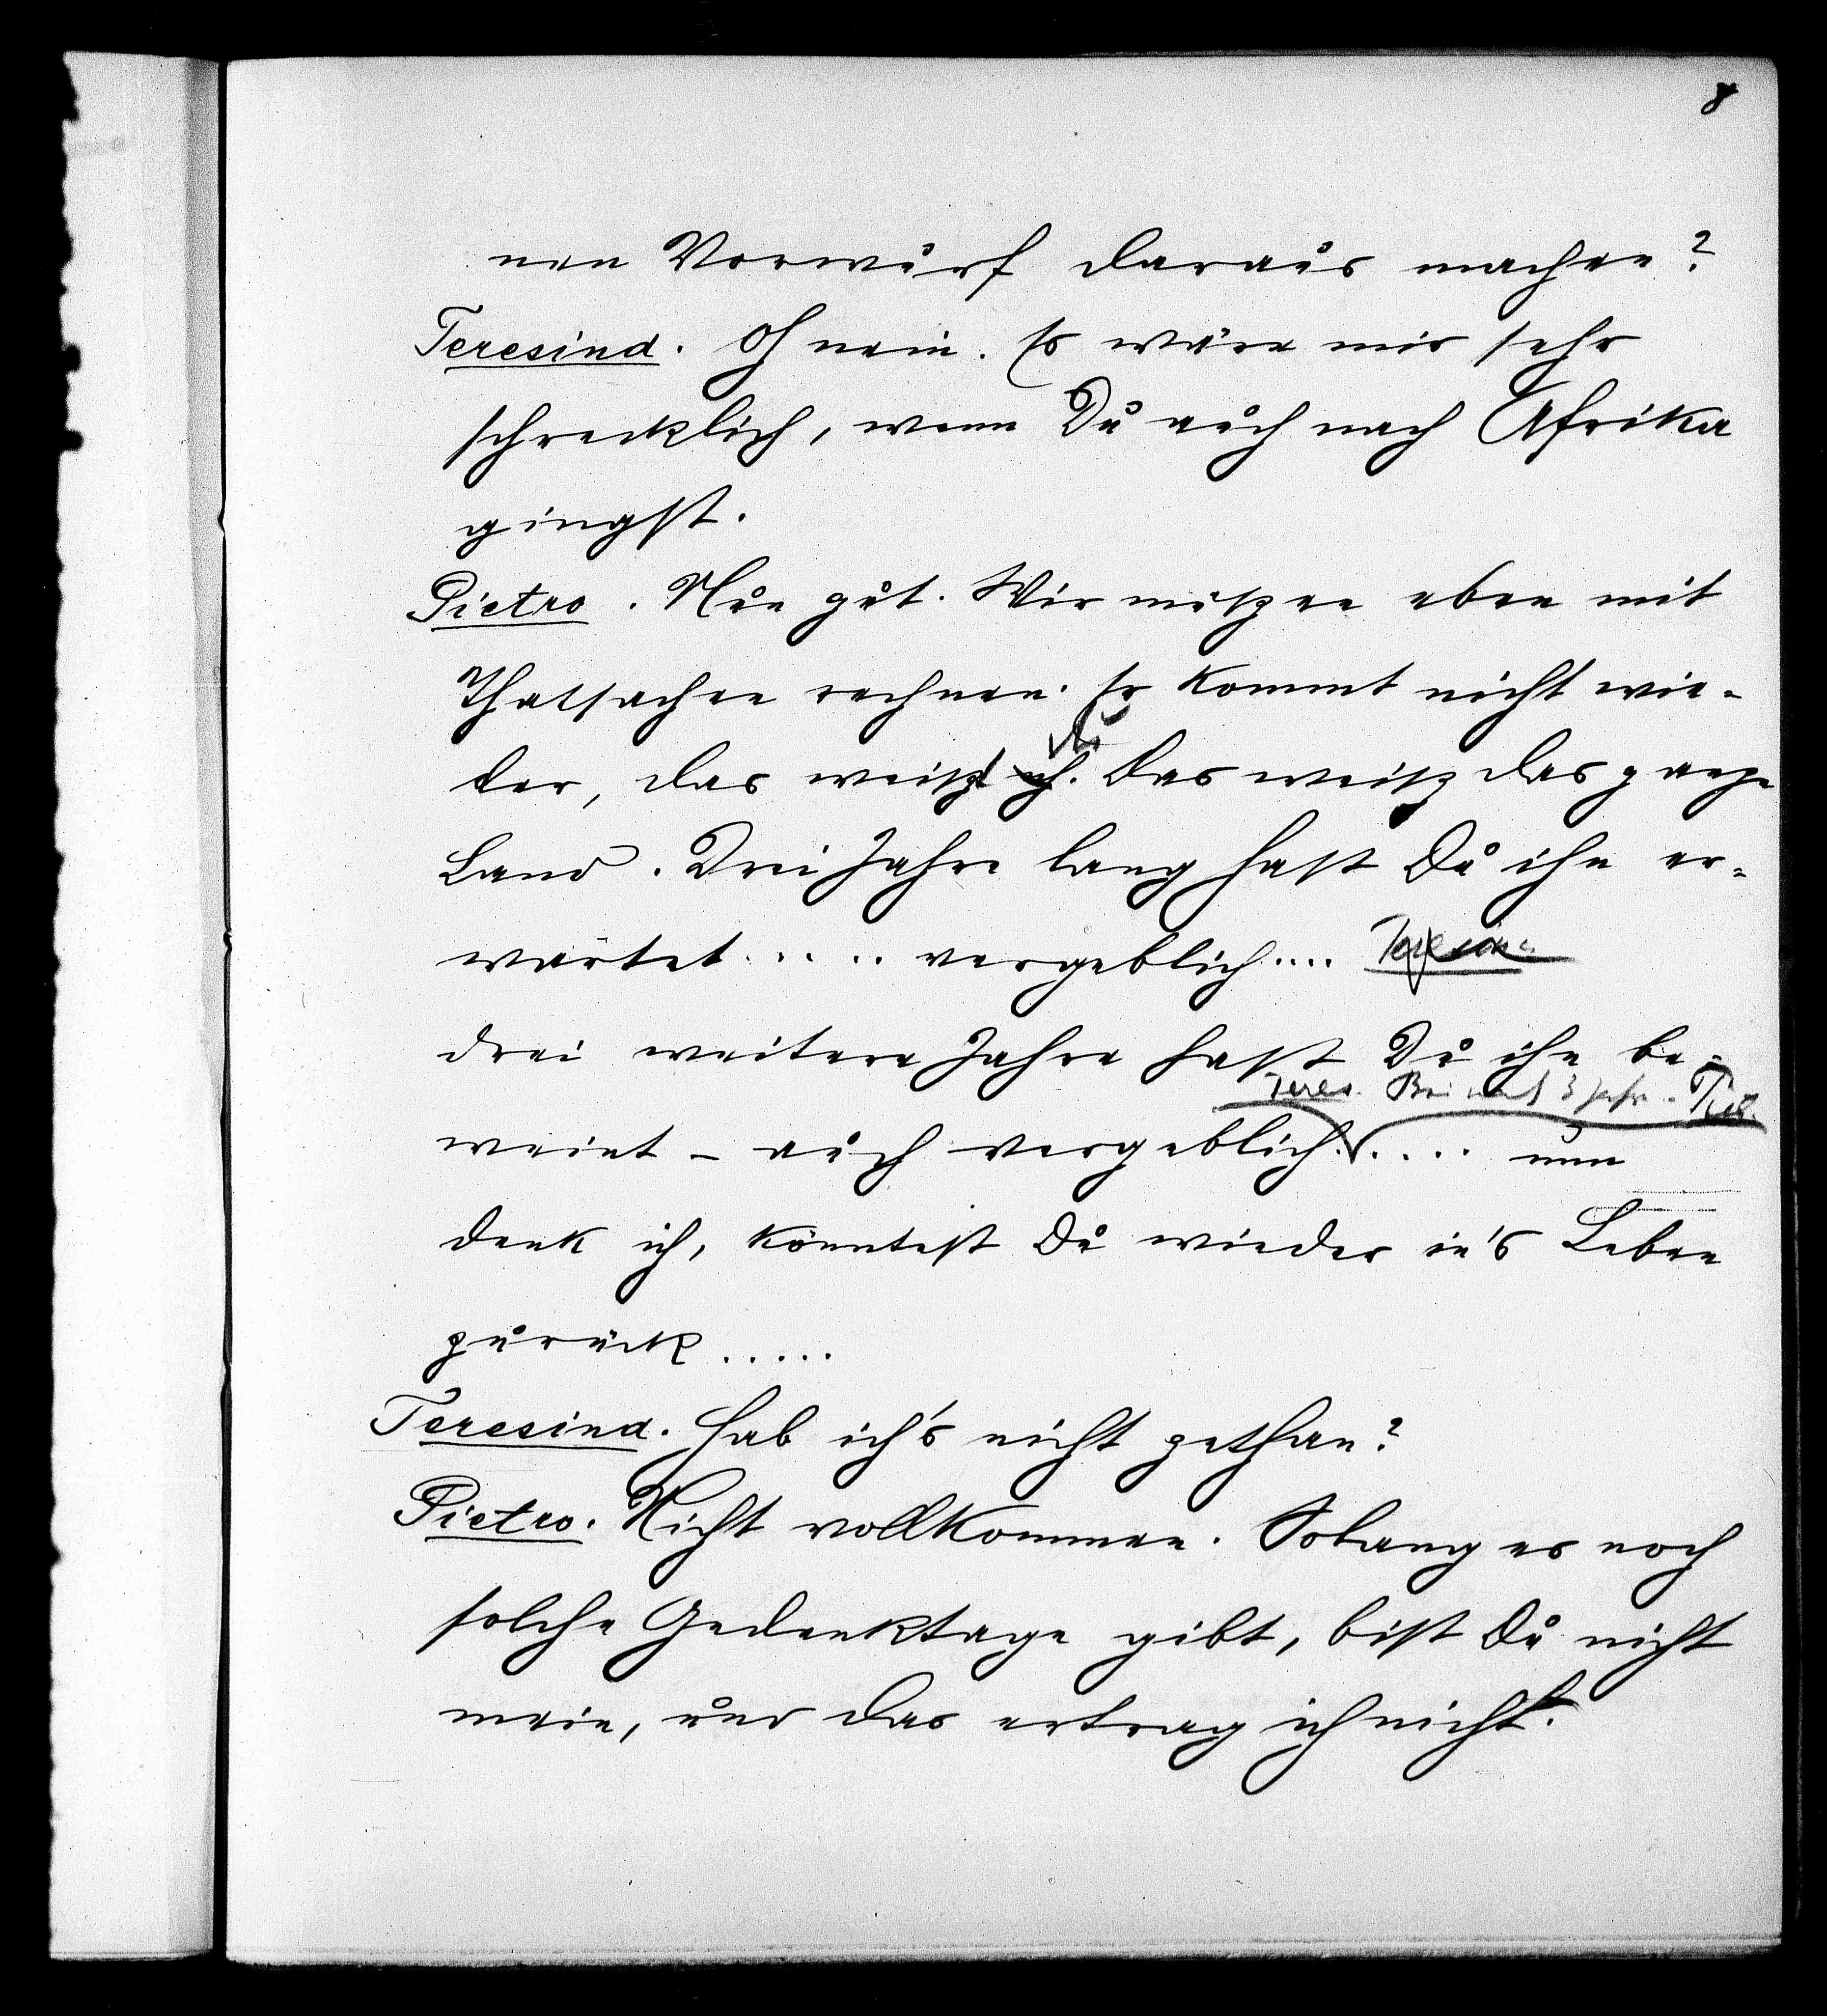 8
nen Vorwurf daraus machen?
Teresina. Oh nein. Es wäre mir sehr
schrecklich, wenn Du auch nach Afrika
gingst.
Pietro. Nun gut. Wir müßen eben mit
Thatsachen rechnen. Er kommt nicht wie-
Du
der, das weißt ich. Das weiß das ganze
Land. Drei Jahre lang hast Du ihn er-
wartet..... vergeblich.... Teresina
drei weitere Jahre hast Du ihn be-
Teres. 3 Jahr. Piet.
weint - auch vergeblich..... nun
denk ich, könntest Du wieder in's Leben
zurück.....
Teresina. Hab ich's nicht gethan?
Pietro. Nicht vollkommen. Solang es noch
solche Gedenktage gibt, bist Du nicht
mein, und das ertrag ich nicht.